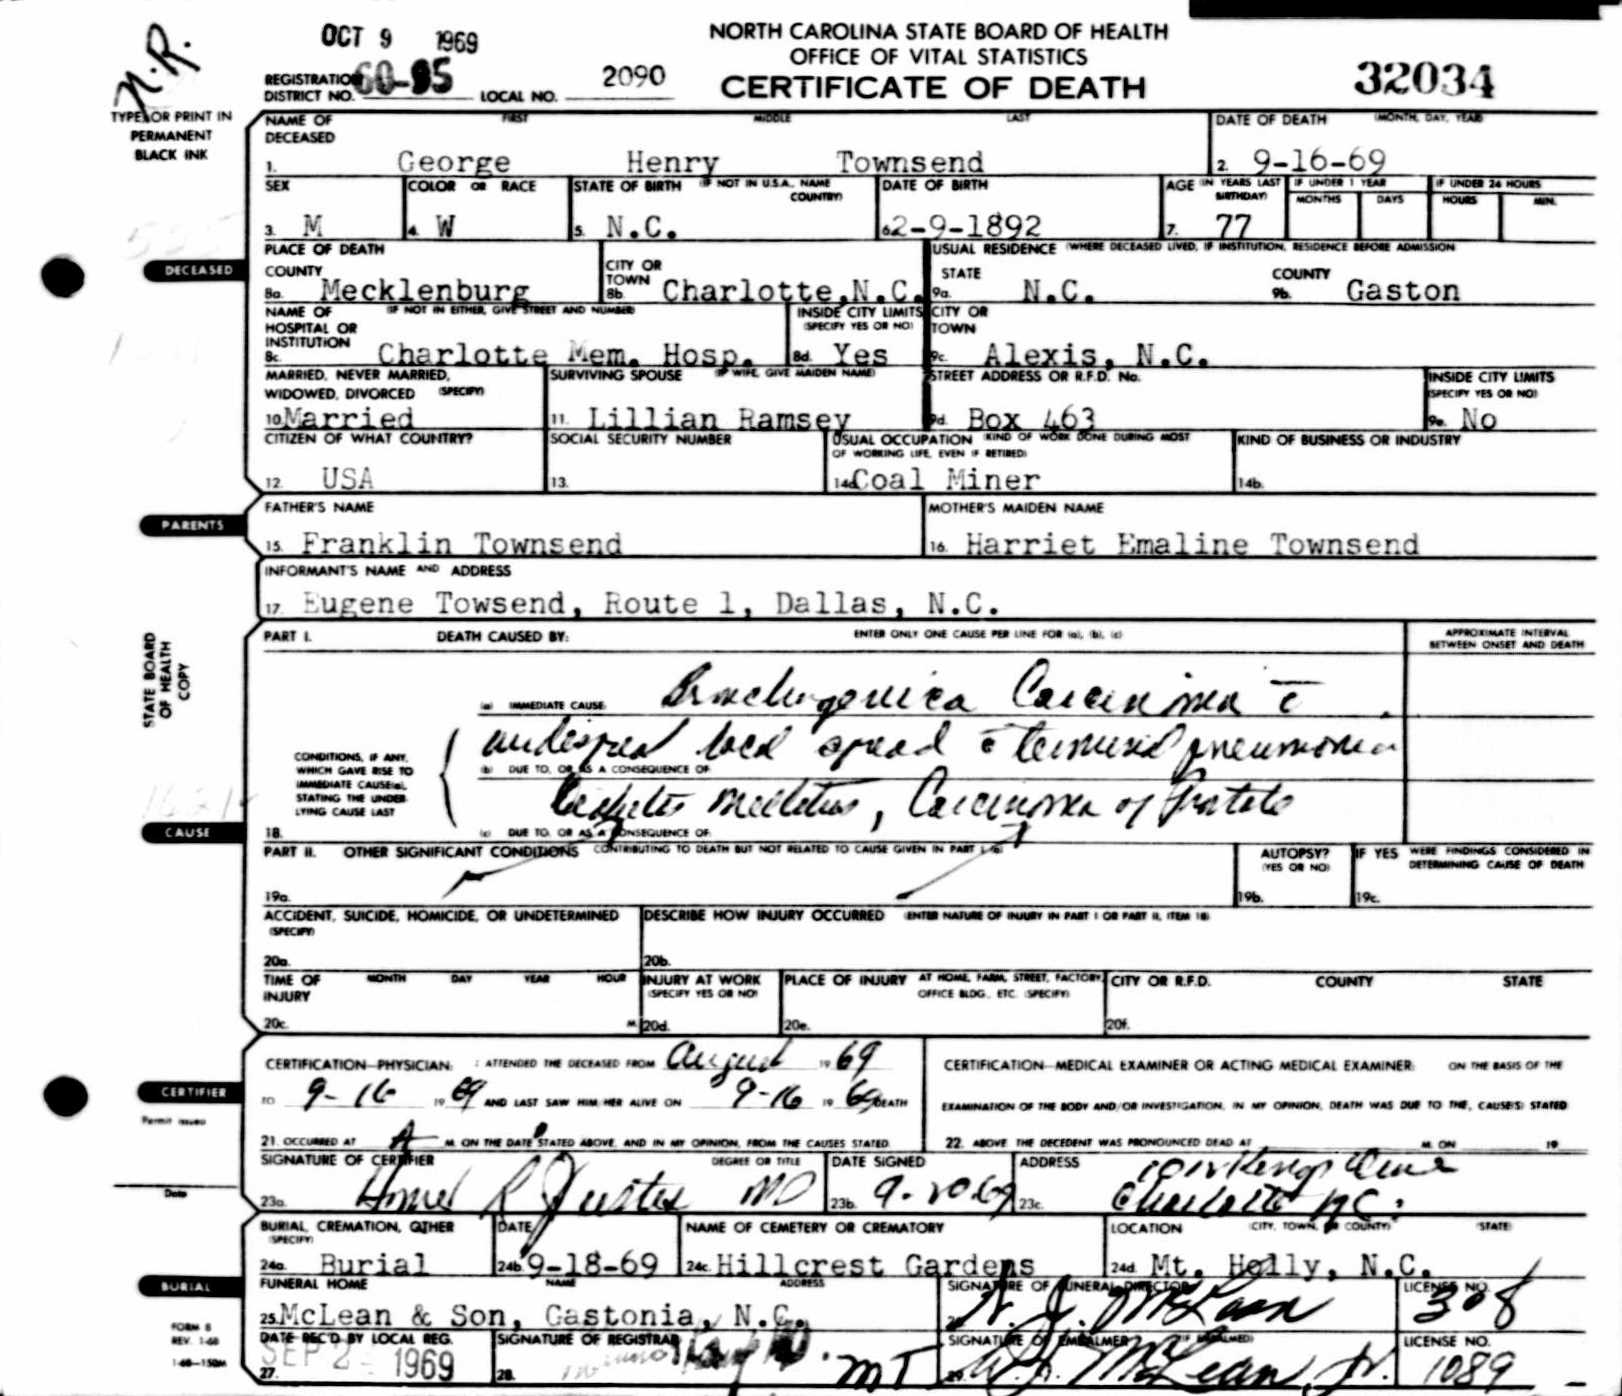 N.R.
OCT 9 1969
NORTH CAROLINA STATE BOARD OF HEALTH
OFFICE OF VITAL STATISTICS
CERTIFICATE OF DEATH
REGISTRATION DISTRICT NO. 60-95 LOCAL NO. 2090
32034
TYPE OR PRINT IN
PERMANENT
BLACK INK
NAME OF DECEASED FIRST MIDDLE LAST
1. George Henry Townsend
DATE OF DEATH (MONTH, DAY, YEAR)
2. 9-16-69
SEX
3. M
COLOR OR RACE
4. W
STATE OF BIRTH (IF NOT IN U.S.A., NAME COUNTRY)
5. N.C.
DATE OF BIRTH
6. 2-9-1892
AGE (IN YEARS LAST BIRTHDAY)
7. 77
IF UNDER 1 YEAR
MONTHS DAYS
IF UNDER 24 HOURS
HOURS MIN.
DECEASED
PLACE OF DEATH
COUNTY
8a. Mecklenburg
CITY OR TOWN
8b. Charlotte, N.C.
USUAL RESIDENCE (WHERE DECEASED LIVED, IF INSTITUTION, RESIDENCE BEFORE ADMISSION
STATE
9a. N.C.
COUNTY
9b. Gaston
NAME OF HOSPITAL OR INSTITUTION (IF NOT IN EITHER, GIVE STREET AND NUMBER)
8c. Charlotte Mem. Hosp.
INSIDE CITY LIMITS (SPECIFY YES OR NO)
8d. Yes
CITY OR TOWN
9c. Alexis, N.C.
MARRIED, NEVER MARRIED, WIDOWED, DIVORCED (SPECIFY)
10. Married
SURVIVING SPOUSE (IF WIFE, GIVE MAIDEN NAME)
11. Lillian Ramsey
STREET ADDRESS OR R.F.D. No.
9d. Box 463
INSIDE CITY LIMITS (SPECIFY YES OR NO)
9e. No
CITIZEN OF WHAT COUNTRY?
12. USA
SOCIAL SECURITY NUMBER
13.
USUAL OCCUPATION (KIND OF WORK DONE DURING MOST OF WORKING LIFE, EVEN IF RETIRED)
14a. Coal Miner
KIND OF BUSINESS OR INDUSTRY
14b.
PARENTS
FATHER'S NAME
15. Franklin Townsend
MOTHER'S MAIDEN NAME
16. Harriet Emaline Townsend
INFORMANT'S NAME AND ADDRESS
17. Eugene Towsend, Route 1, Dallas, N.C.
STATE BOARD
OF HEALTH
COPY
PART I. DEATH CAUSED BY: ENTER ONLY ONE CAUSE PER LINE FOR (a), (b), (c)
APPROXIMATE INTERVAL
BETWEEN ONSET AND DEATH
(a) IMMEDIATE CAUSE Bronchogenica Carcinoma c̄
widespread local spread c̄ terminal pneumonia
CONDITIONS, IF ANY,
WHICH GAVE RISE TO
IMMEDIATE CAUSE(a),
STATING THE UNDER-
LYING CAUSE LAST
(b) DUE TO, OR AS A CONSEQUENCE OF:
Diabetes Mellitus, Carcinoma of Prostate
18. (c) DUE TO, OR AS A CONSEQUENCE OF:
CAUSE
PART II. OTHER SIGNIFICANT CONDITIONS CONTRIBUTING TO DEATH BUT NOT RELATED TO CAUSE GIVEN IN PART I (a)
19a.
AUTOPSY?
(YES OR NO)
19b.
IF YES WERE FINDINGS CONSIDERED IN DETERMINING CAUSE OF DEATH
19c.
ACCIDENT, SUICIDE, HOMICIDE, OR UNDETERMINED
(SPECIFY)
20a.
DESCRIBE HOW INJURY OCCURRED (ENTER NATURE OF INJURY IN PART I OR PART II, ITEM 18)
20b.
TIME OF INJURY MONTH DAY YEAR HOUR
20c. M.
INJURY AT WORK
(SPECIFY YES OR NO)
20d.
PLACE OF INJURY AT HOME, FARM, STREET, FACTORY, OFFICE BLDG., ETC. (SPECIFY)
20e.
CITY OR R.F.D. COUNTY STATE
20f.
CERTIFIER
Permit issued
Date
CERTIFICATION—PHYSICIAN: I ATTENDED THE DECEASED FROM August 19 69
TO 9-16 19 69 AND LAST SAW HIM/HER ALIVE ON 9-16 19 69 DEATH
21. OCCURRED AT A M. ON THE DATE STATED ABOVE, AND IN MY OPINION, FROM THE CAUSES STATED.
CERTIFICATION—MEDICAL EXAMINER OR ACTING MEDICAL EXAMINER: ON THE BASIS OF THE
EXAMINATION OF THE BODY AND/OR INVESTIGATION, IN MY OPINION, DEATH WAS DUE TO THE, CAUSE(S) STATED
22. ABOVE. THE DECEDENT WAS PRONOUNCED DEAD AT M. ON 19
SIGNATURE OF CERTIFIER DEGREE OR TITLE
23a. MD
DATE SIGNED
23b. 9-20-69
ADDRESS
Kings Drive
23c. Charlotte NC.
BURIAL, CREMATION, OTHER
(SPECIFY)
24a. Burial
DATE
24b. 9-18-69
NAME OF CEMETERY OR CREMATORY
24c. Hillcrest Gardens
LOCATION (CITY, TOWN, OR COUNTY) (STATE)
24d. Mt. Holly, N.C.
BURIAL
FUNERAL HOME NAME ADDRESS
25. McLean & Son, Gastonia, N.C.
SIGNATURE OF FUNERAL DIRECTOR
W. J. McLean
LICENSE NO.
308
FORM 8
REV. 1-68
1-68—150M
DATE REC'D BY LOCAL REG.
27. SEP 2 1969
SIGNATURE OF REGISTRAR
28. MT
SIGNATURE OF EMBALMER (IF EMBALMED)
29. W. J. McLean, Jr.
LICENSE NO.
1089